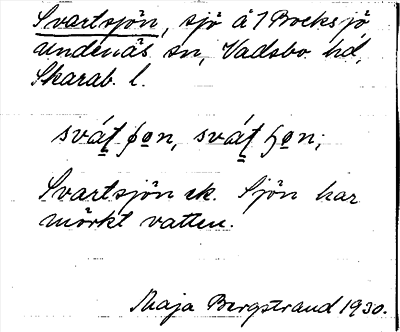 Svartsjön, sjö å 1 Bocksjö
undenäs sn, Vadsbo hd,
Skarab. l.
Svartsjön ek. Sjön har
mörkt vatten.
Maja Bergstrand 1930.